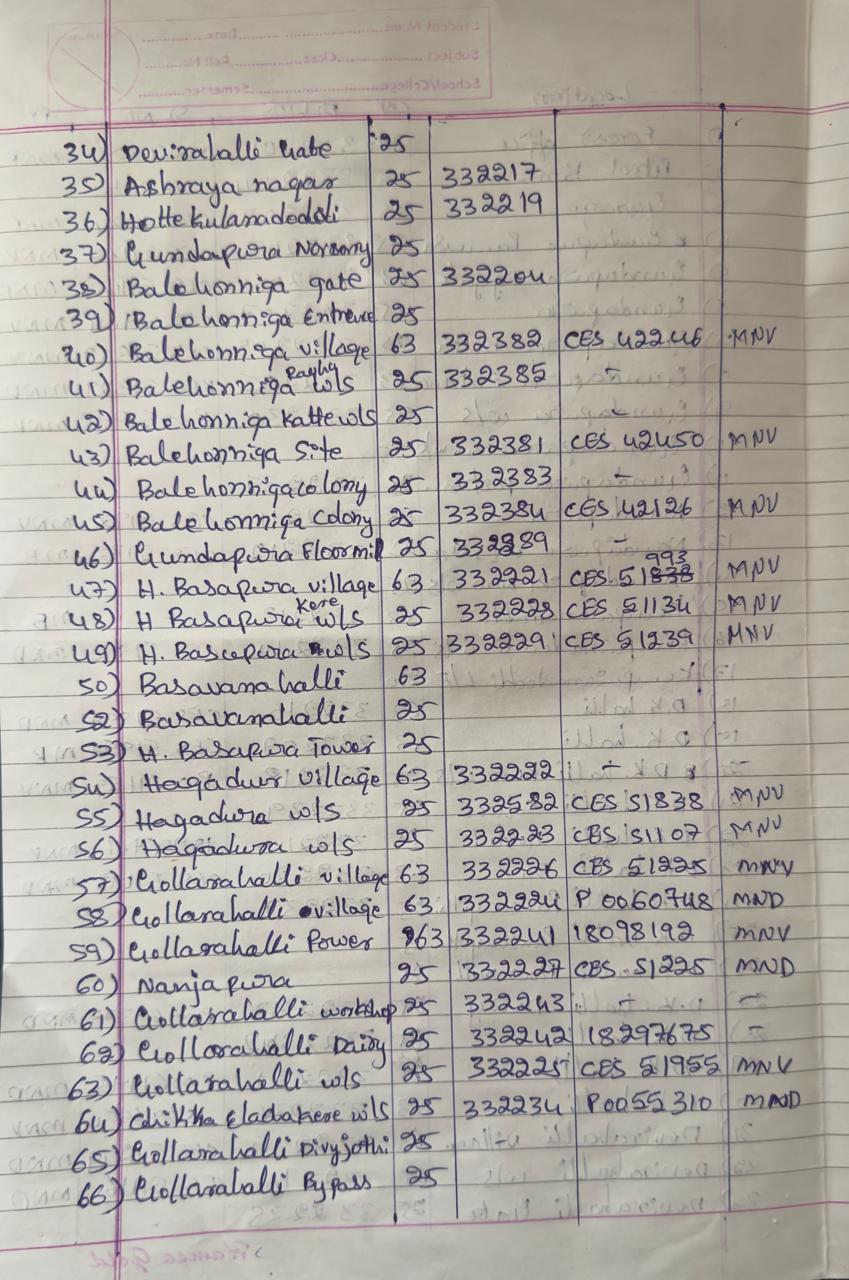 34) Devirahalli Gate 25
35) Ashraya nagar 25 332217
36) Hottekulanadoddi 25 332219
37) Gundapura Norsory 25
38) Balehonniga gate 25 332204
39) Balehonniga Entrence 25
40) Balehonniga village 63 332382 CES 42246 MNV
41) Balehonniga Raghu w/s 25 332385 -
42) Balehonniga Katte w/s 25 -
43) Balehonniga Site 25 332381 CES 42450 MNV
44) Balehonniga colony 25 332383 -
45) Balehonniga Colony 25 332384 CES 42126 MNV
46) Gundapura Floormil 25 -
47) H. Basapura village 63 332221 CES 51993 MNV
48) H Basapura Kere w/s 25 332228 CES 51134 MNV
49) H. Basapura w/s 25 332229 CES 51239 MNV
50) Basavanahalli 63
52) Basavanahalli 25
53) H. Basapura Tower 25
54) Hagadur village 63 332222 -
55) Hagadura w/s 25 332582 CES 51838 MNV
56) Hagadura w/s 25 332223 CES 51107 MNV
57) Gollarahalli village 63 332226 CES 51225 MNV
58) Gollarahalli village 63 332224 P 0060748 MND
59) Gollarahalli Power 63 332241 18098192 MNV
60) Nanjapura 25 332227 CES 51225 MND
61) Gollarahalli workshop 25 332243 - -
62) Gollarahalli Dairy 25 332242 18297675 -
63) Gollarahalli w/s 25 332225 CES 51955 MNV
64) Chikka Eladakere w/s 25 332234 P0055310 MND
65) Gollarahalli Divyjothi 25
66) Gollarahalli Bypass 25